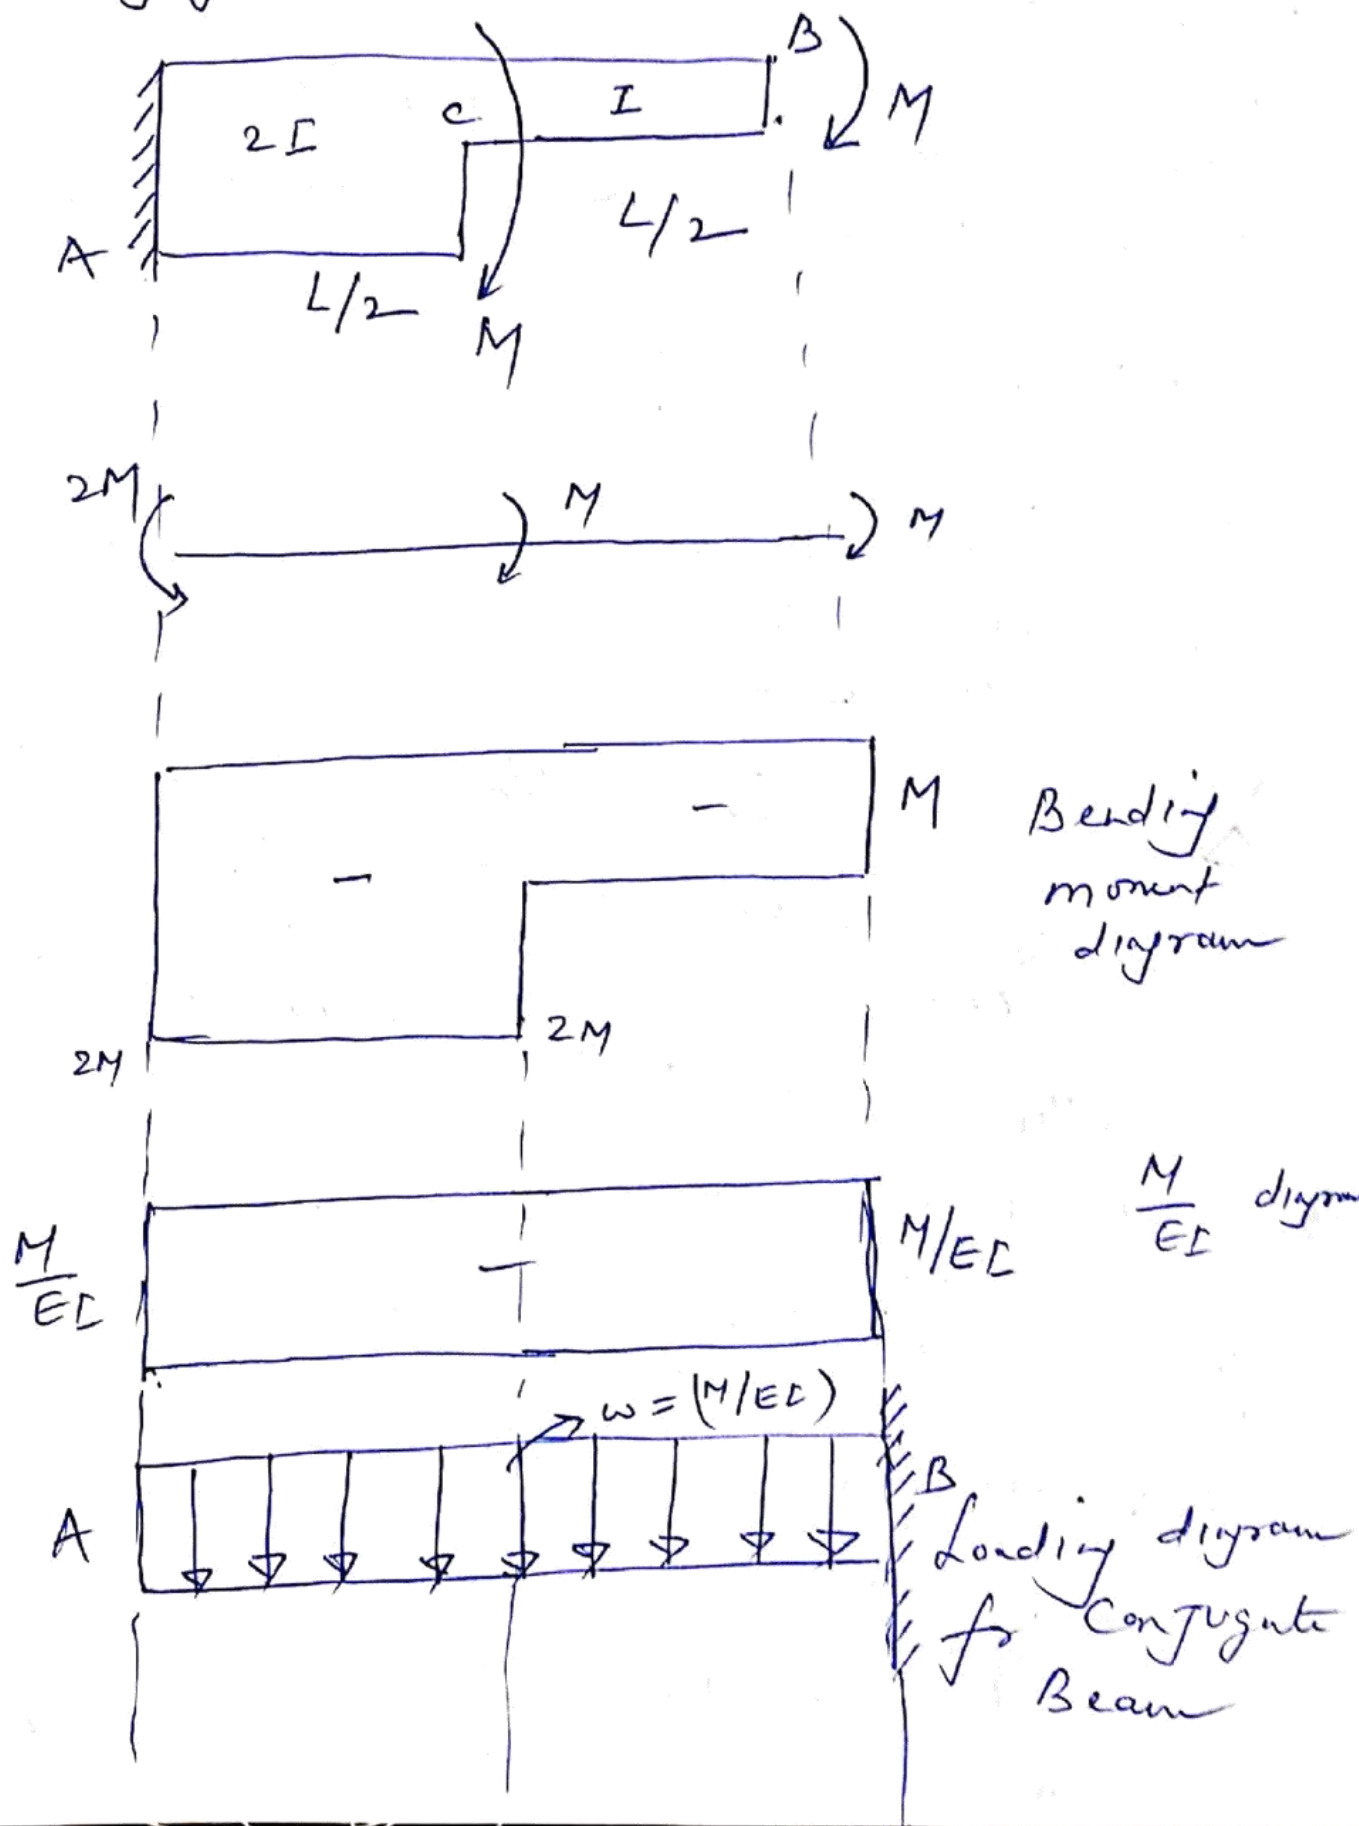 B
M
I
C
2I
L/2
A
L/2
M
2M
M
M
M
Bending
moment
diagram
2M
2M
M/EI
M/EI
M/EI diagram
w = (M/EI)
B
A
Loading diagram
for Conjugate
Beam